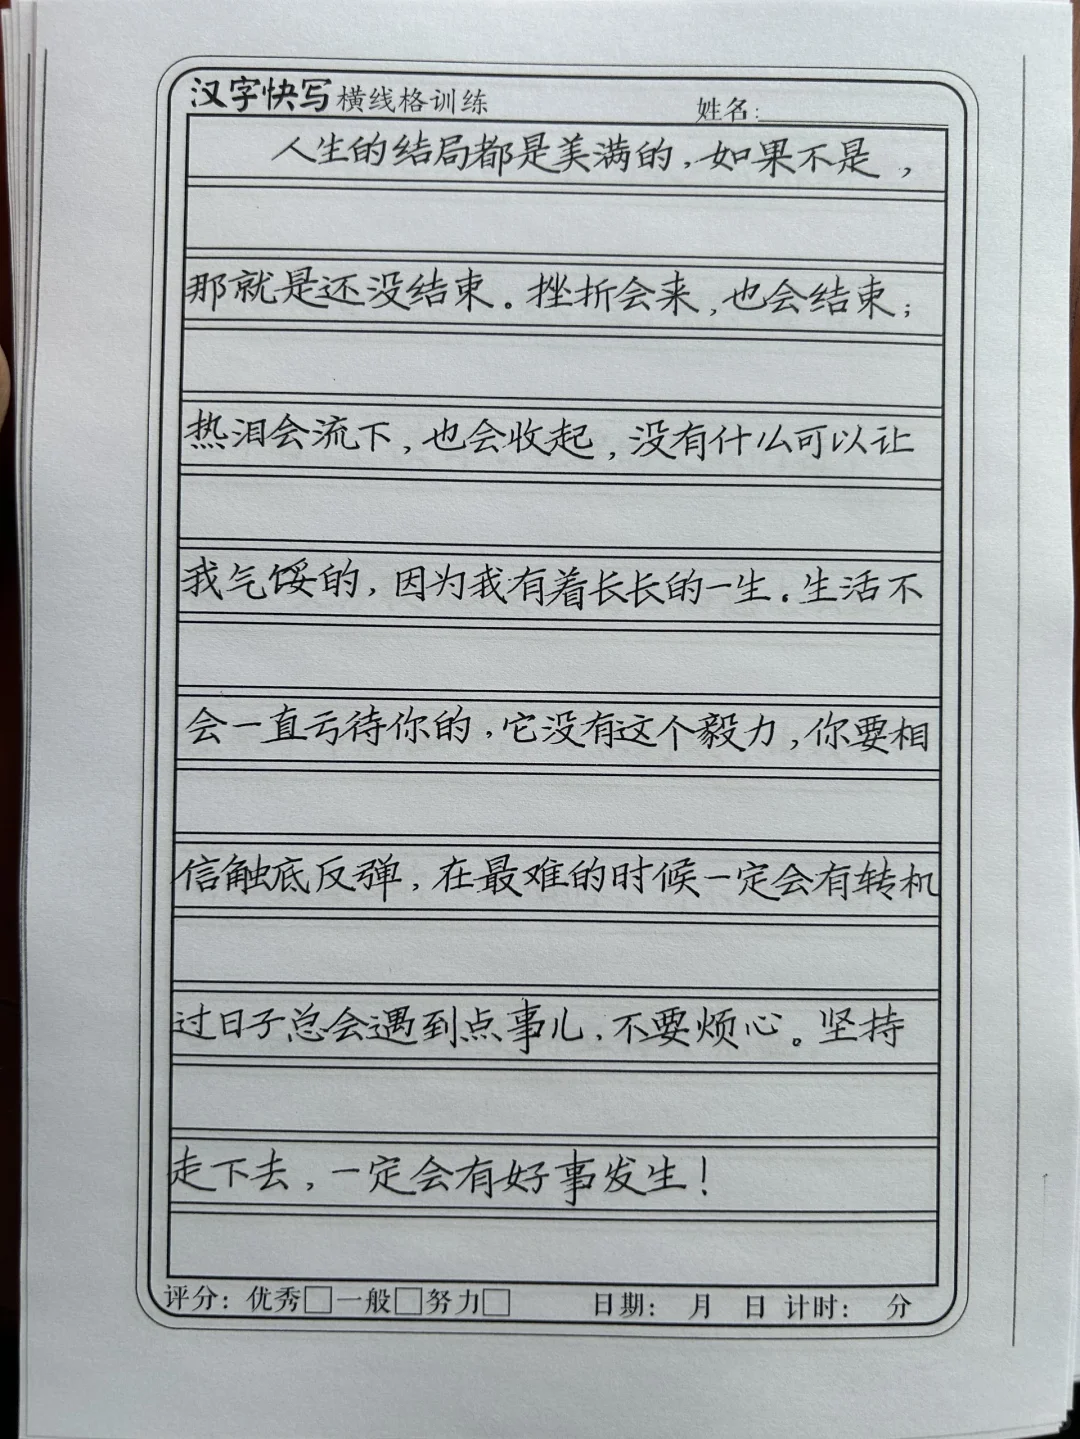 汉字快写横线格训练 姓名:
人生的结局都是美满的,如果不是,
那就是还没结束。挫折会来,也会结束;
热泪会流下,也会收起,没有什么可以让
我气馁的,因为我有着长长的一生。生活不
会一直亏待你的,它没有这个毅力,你要相
信触底反弹,在最难的时候一定会有转机
过日子总会遇到点事儿,不要烦心。坚持
走下去,一定会有好事发生!
评分: 优秀□一般□努力□ 日期: 月 日 计时: 分